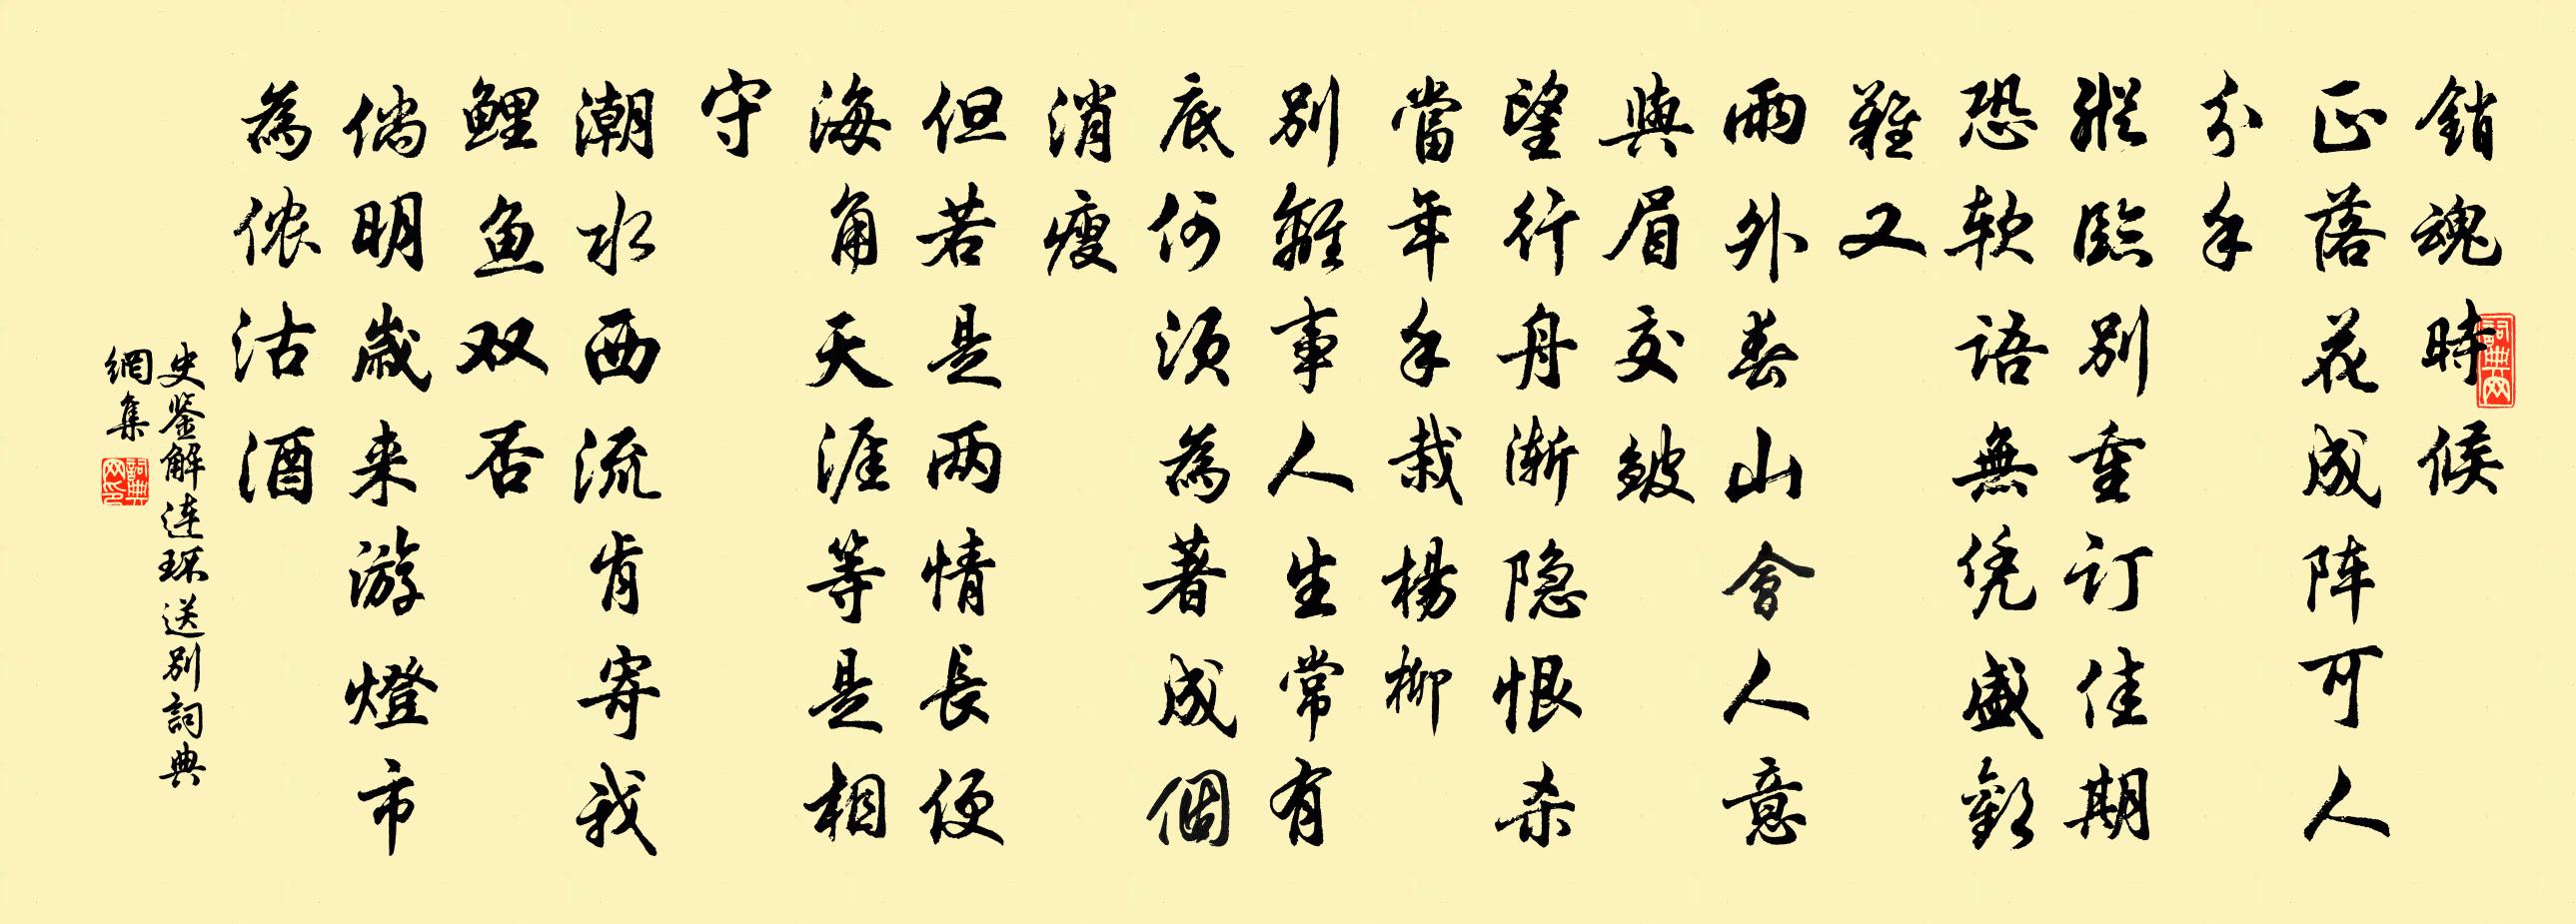 銷魂時候
正落花成阵可人
分手
縱臨別重订佳期
恐软語無凭盛歡
難又
雨外春山會人意
與眉交皱
望行舟漸隐恨杀
當年手栽楊柳
別離事人生常有
底何须為著成個
消瘦
但若是两情長便
海角天涯等是相
守
潮水西流肯寄我
鲤鱼双否
倘明歲来游燈市
為侬沽酒
史鉴解连环送别詞典
網集
詞典网
詞典网印